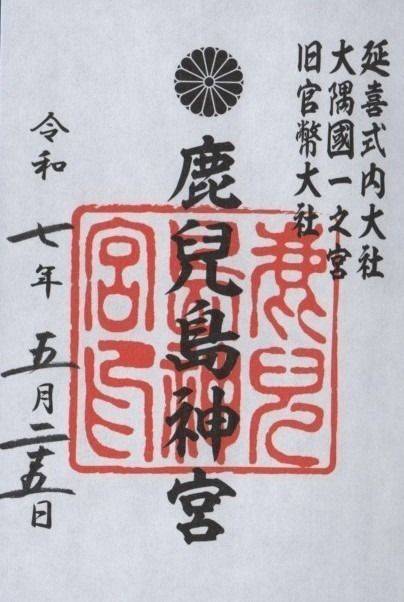 延喜式内大社
大隅國一之宮
旧官幣大社
鹿兒島神宮
鹿兒島神宮印
令和七年五月二十五日